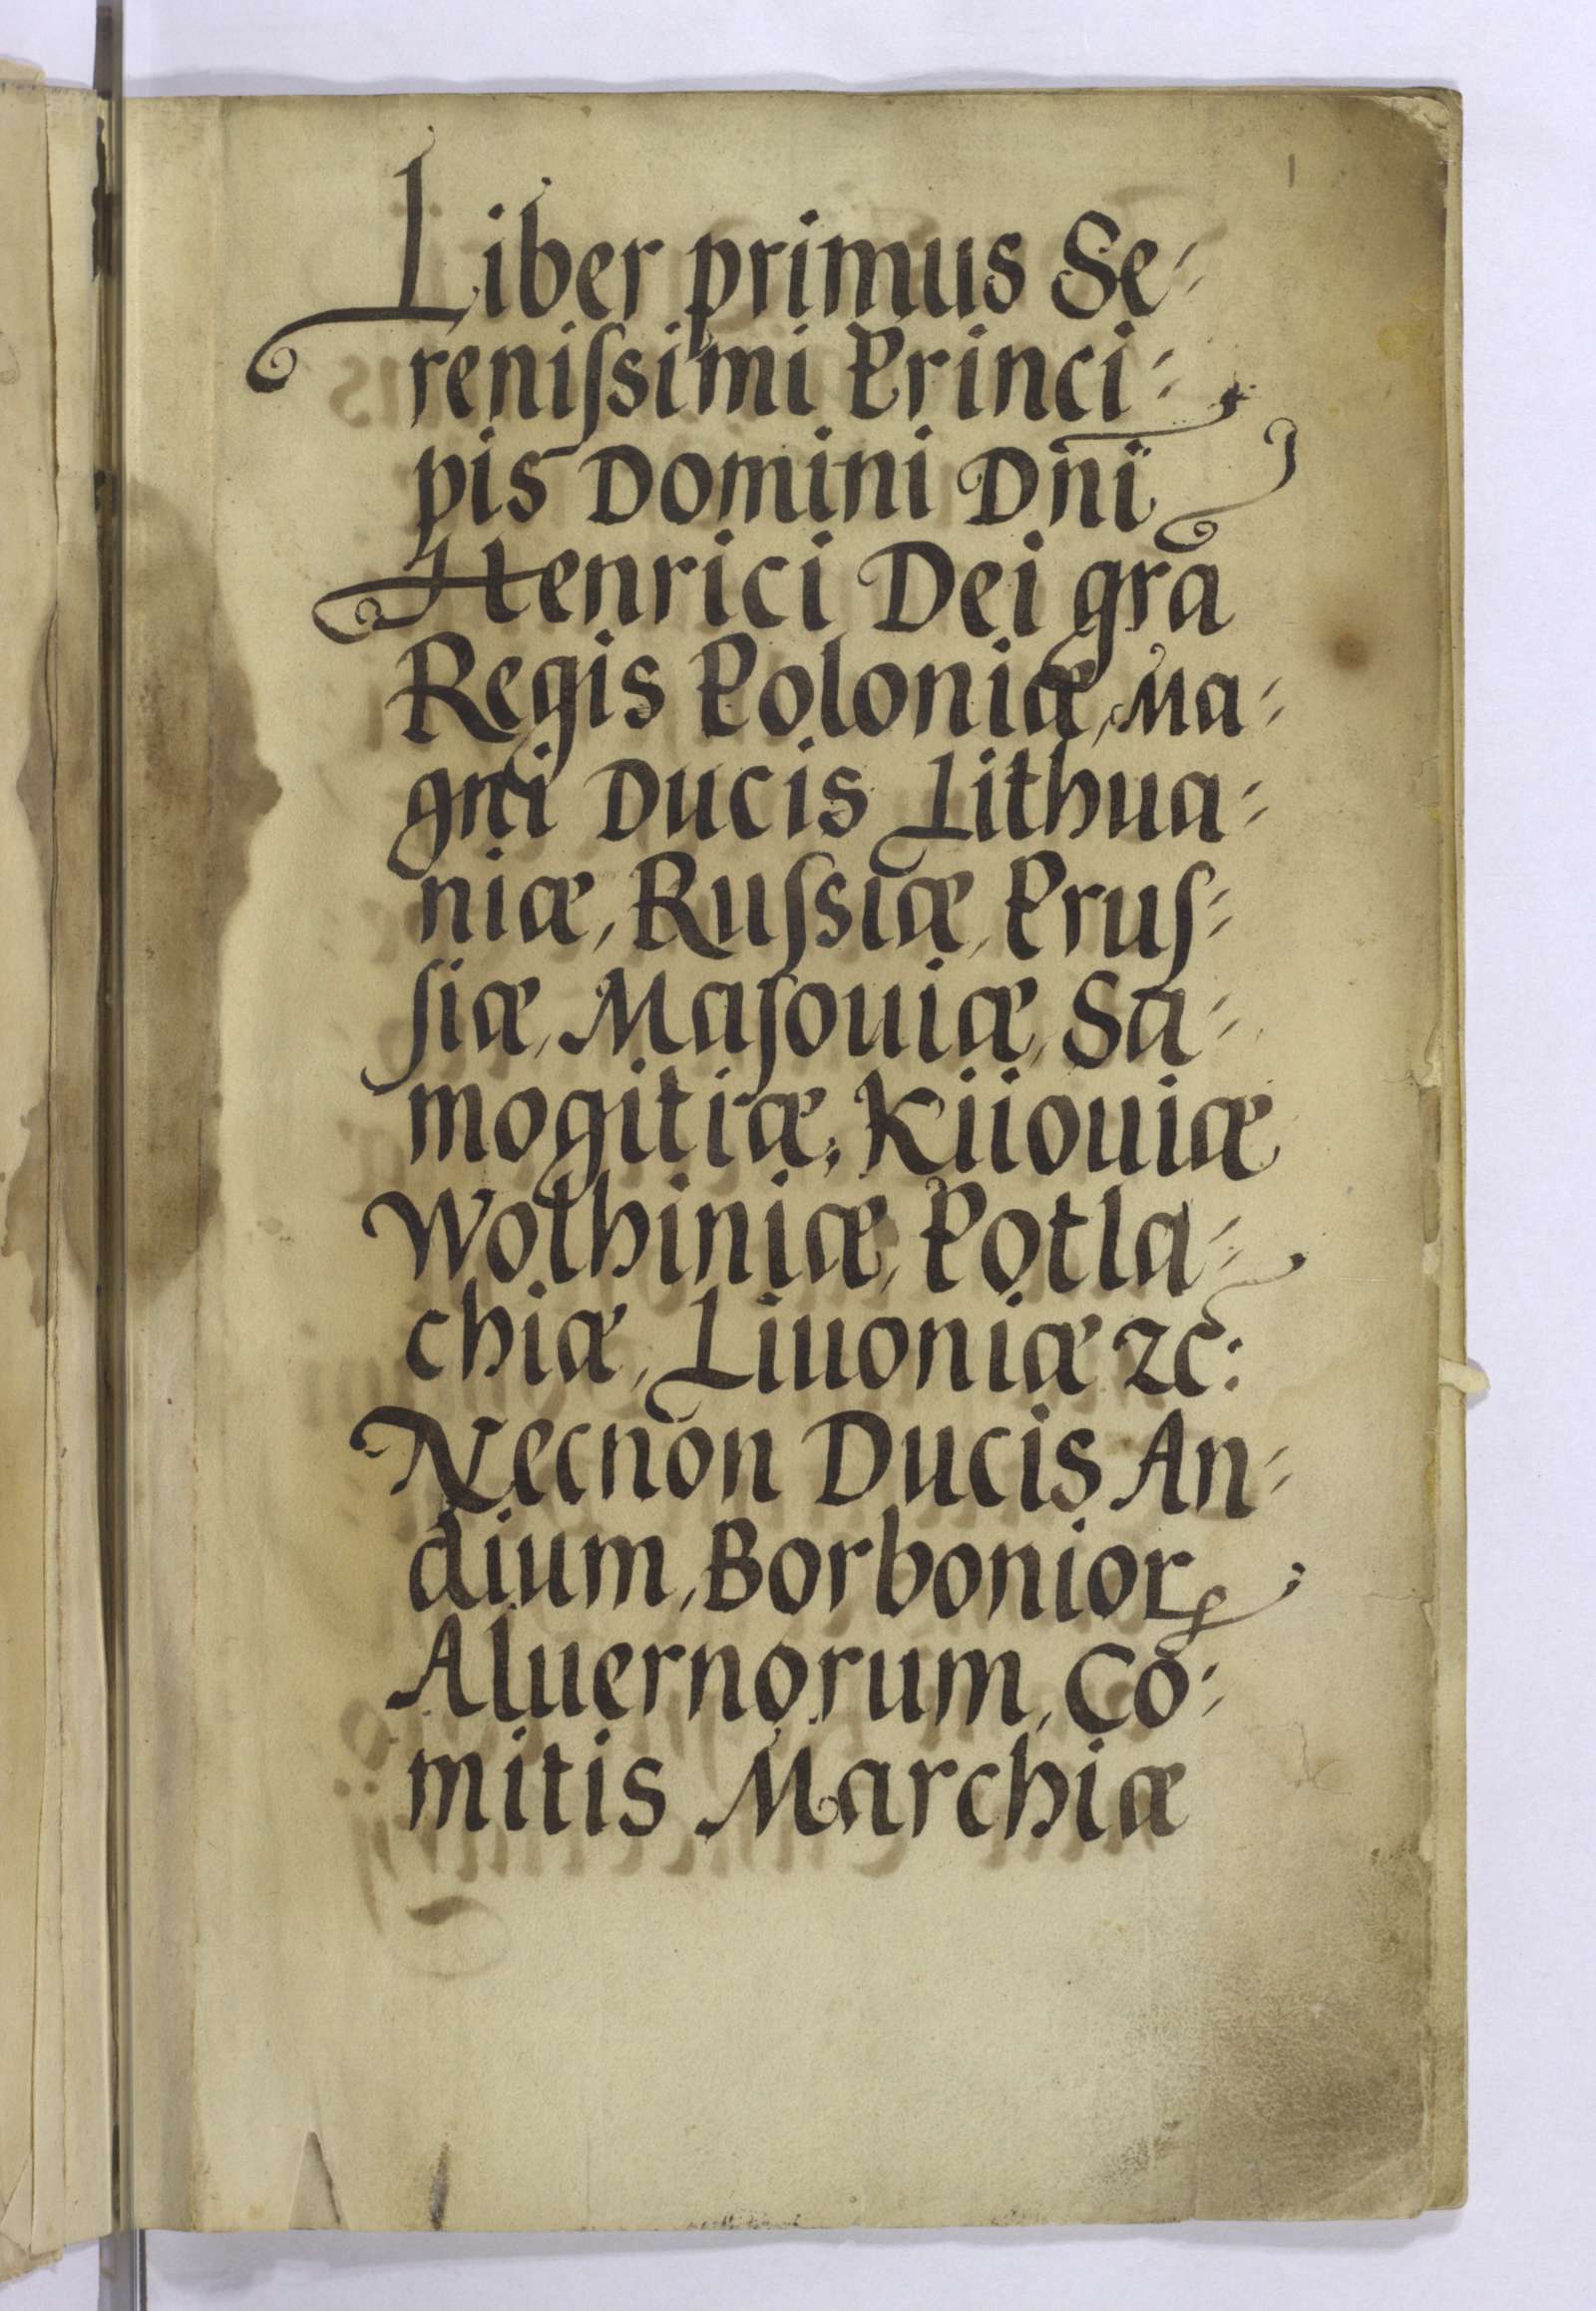 1
Liber primus Se-
reniſsimi Princi-
pis Domini Dn̄i
Henrici Dei gr̄a
Regis Poloniæ, Ma-
gni Ducis Lithua-
niæ, Ruſsiæ, Pruſ-
ſiæ, Maſouiæ, Sa-
mogitiæ, Kiiouiæ
Wolhiniæ, Potla-
chiæ, Liuoniæ ꝛc:
Necnon Ducis An-
dium, Borbonioꝝ
Aluernorum, Co-
mitis Marchiæ